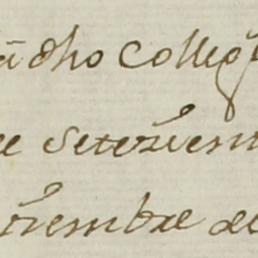 dho Colleg
e setezien
ziembre de